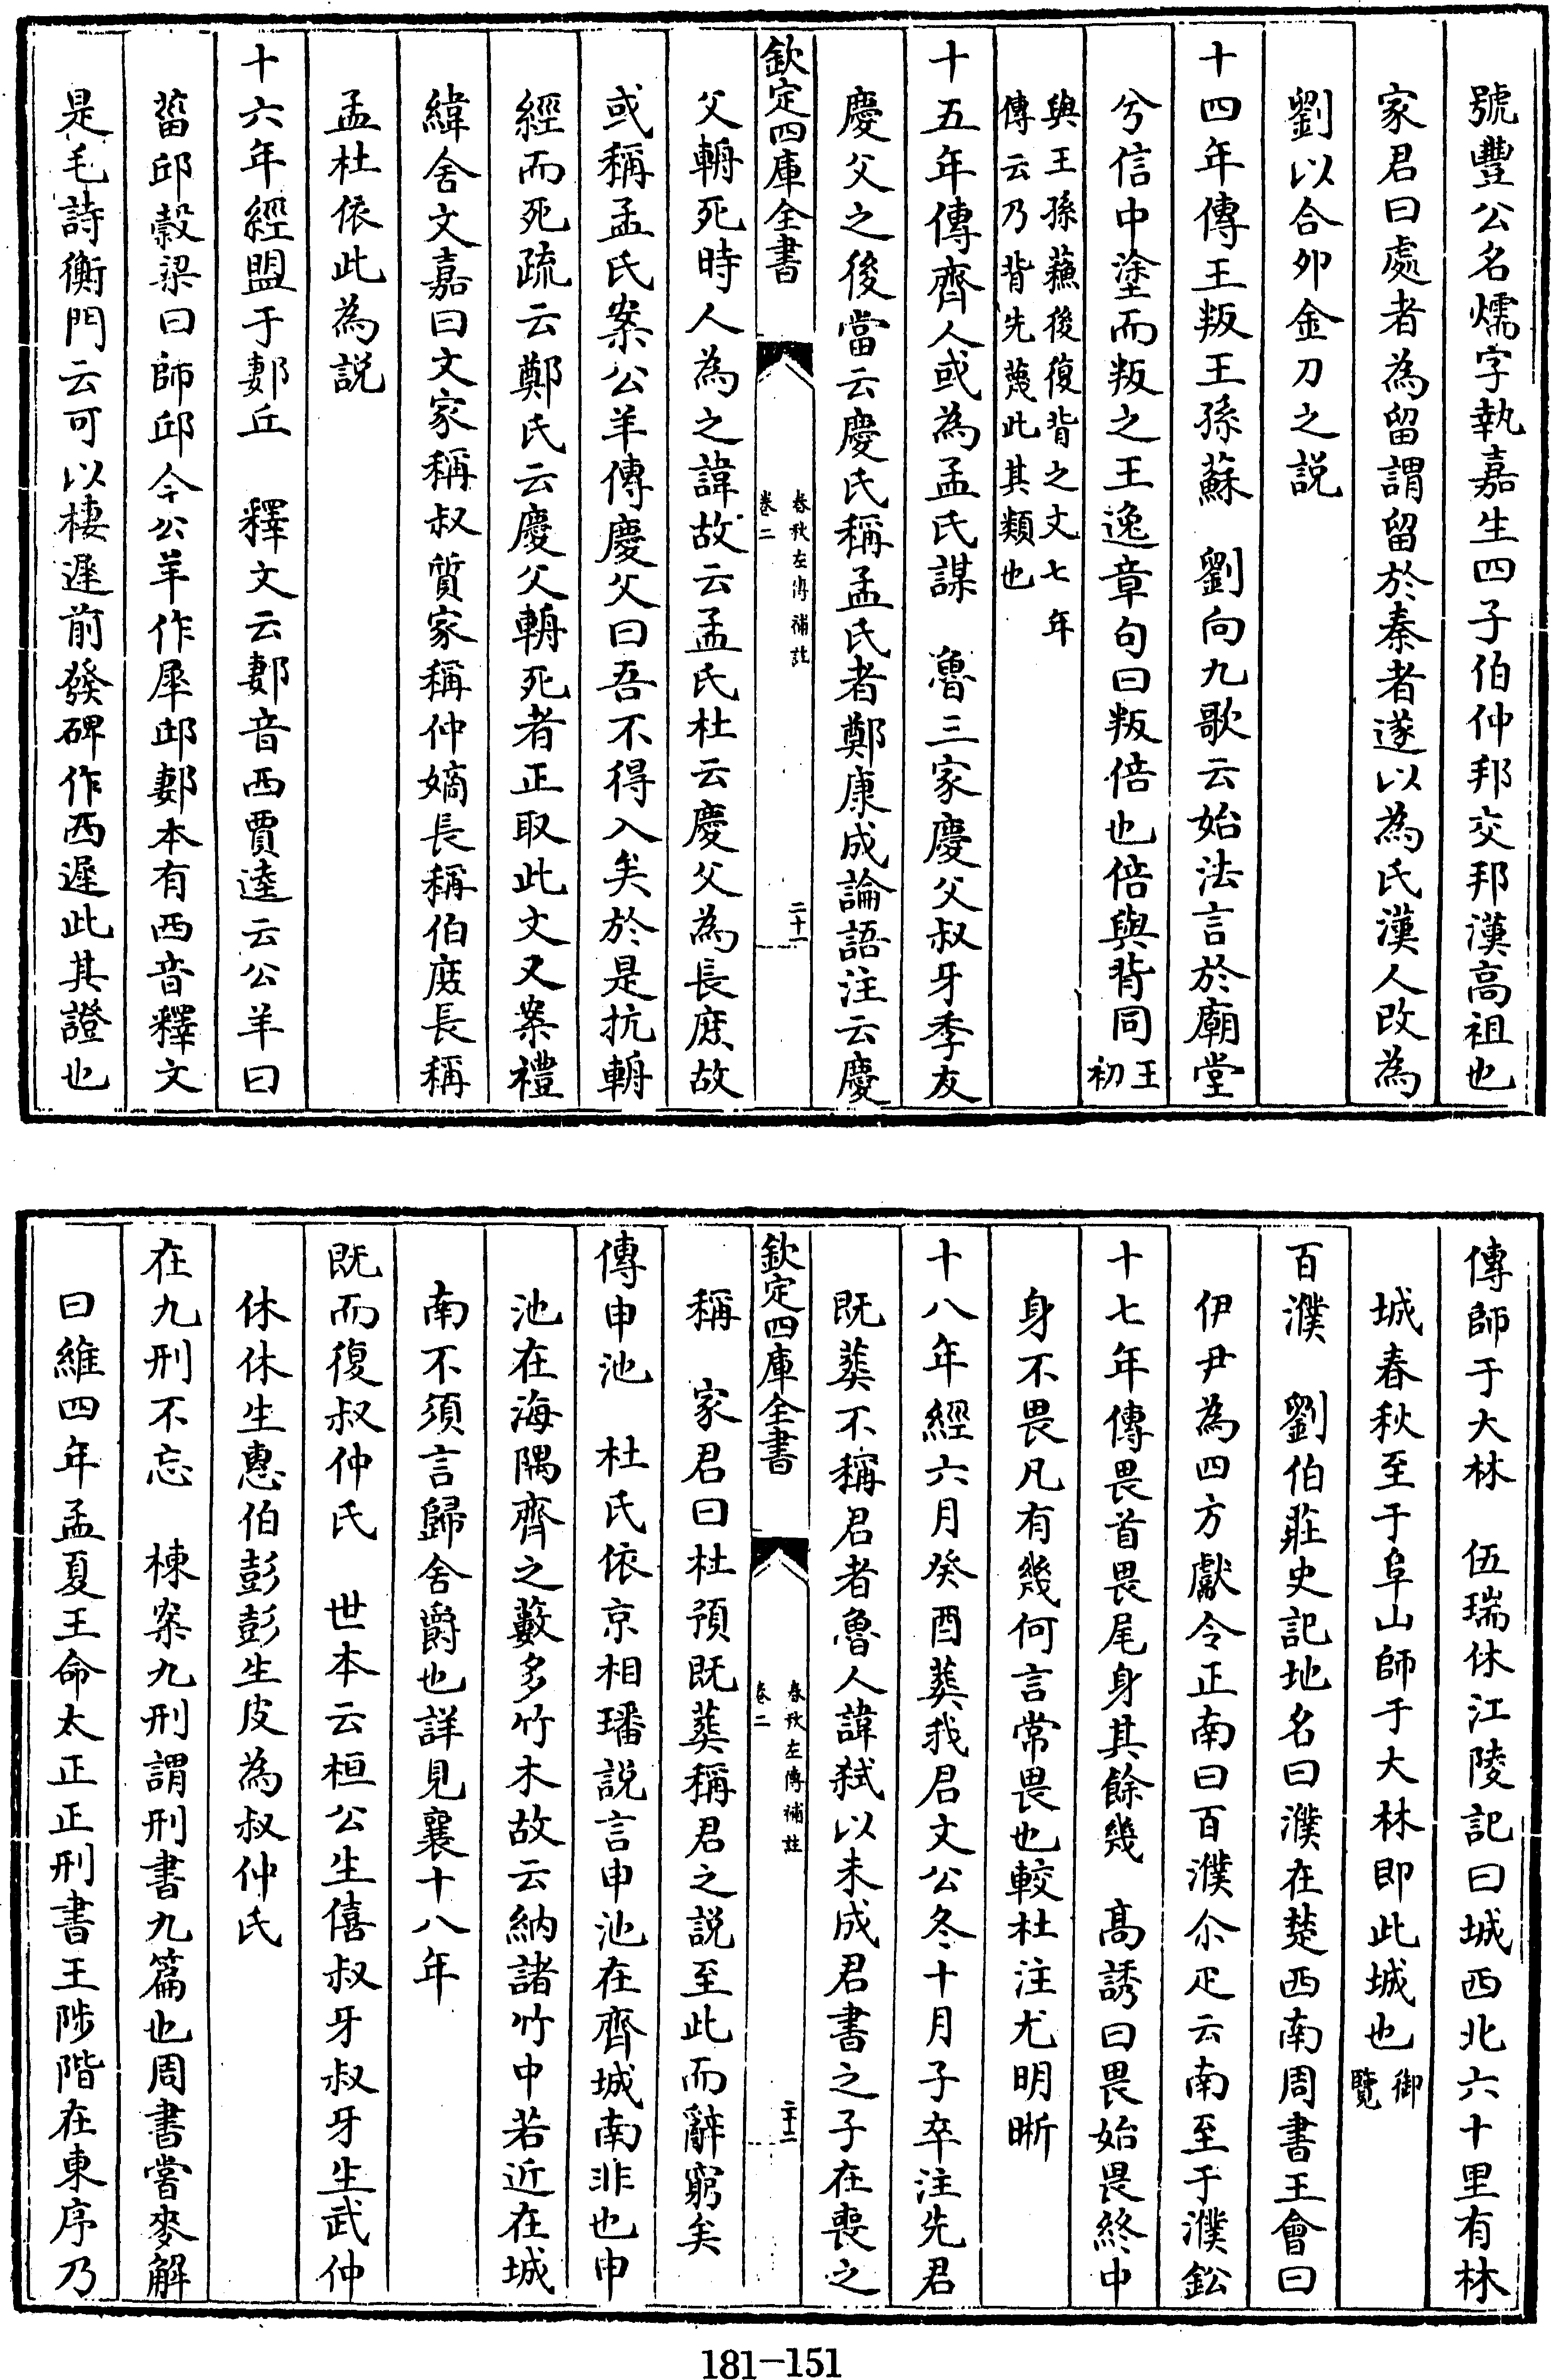 號豐公名煓字執嘉生四子伯仲邦交邦漢高祖也
家君曰處者為留謂留於秦者遂以為氏漢人改為
劉以合卯金刀之說
十四年傳王叛王孫蘇　劉向九歌云始法言於廟堂
兮信中塗而叛之王逸章句曰叛倍也倍與背同王初
與王孫蘓後復背之文七年
傳云乃背先蔑此其類也
十五年傳齊人或為孟氏謀　魯三家慶父叔牙季友
慶父之後當云慶氏稱孟氏者鄭康成論語注云慶
欽定四庫全書
春秋左傳補註
卷二
二十一
父輈死時人為之諱故云孟氏杜云慶父為長庶故
或稱孟氏案公羊傳慶父曰吾不得入矣於是抗輈
經而死疏云鄭氏云慶父輈死者正取此文又案禮
緯含文嘉曰文家稱叔質家稱仲嫡長稱伯庶長稱
孟杜依此為説
十六年經盟于郪丘　釋文云郪音西賈逵云公羊曰
菑邱穀梁曰師邱今公羊作犀邱郪本有西音釋文
是毛詩衡門云可以棲遲前發碑作西遲此其證也
傳師于大林　伍瑞休江陵記曰城西北六十里有林
城春秋至于阜山師于大林即此城也御覽
百濮　劉伯莊史記地名曰濮在楚西南周書王會曰
伊尹為四方獻令正南曰百濮尒疋云南至于濮鈆
十七年傳畏首畏尾身其餘幾　高誘曰畏始畏終中
身不畏凡有幾何言常畏也較杜注尤明晰
十八年經六月癸酉葬我君文公冬十月子卒注先君
既葬不稱君者魯人諱弑以未成君書之子在喪之
欽定四庫全書
春秋左傳補註
卷二
二十二
稱　家君曰杜預既葬稱君之説至此而辭窮矣
傳申池　杜氏依京相璠説言申池在齊城南非也申
池在海隅齊之藪多竹木故云納諸竹中若近在城
南不須言歸舍爵也詳見襄十八年
既而復叔仲氏　世本云桓公生僖叔牙叔牙生武仲
休休生惠伯彭彭生皮為叔仲氏
在九刑不忘　棟案九刑謂刑書九篇也周書嘗麥解
曰維四年孟夏王命太正正刑書王陟階在東序乃
181-151